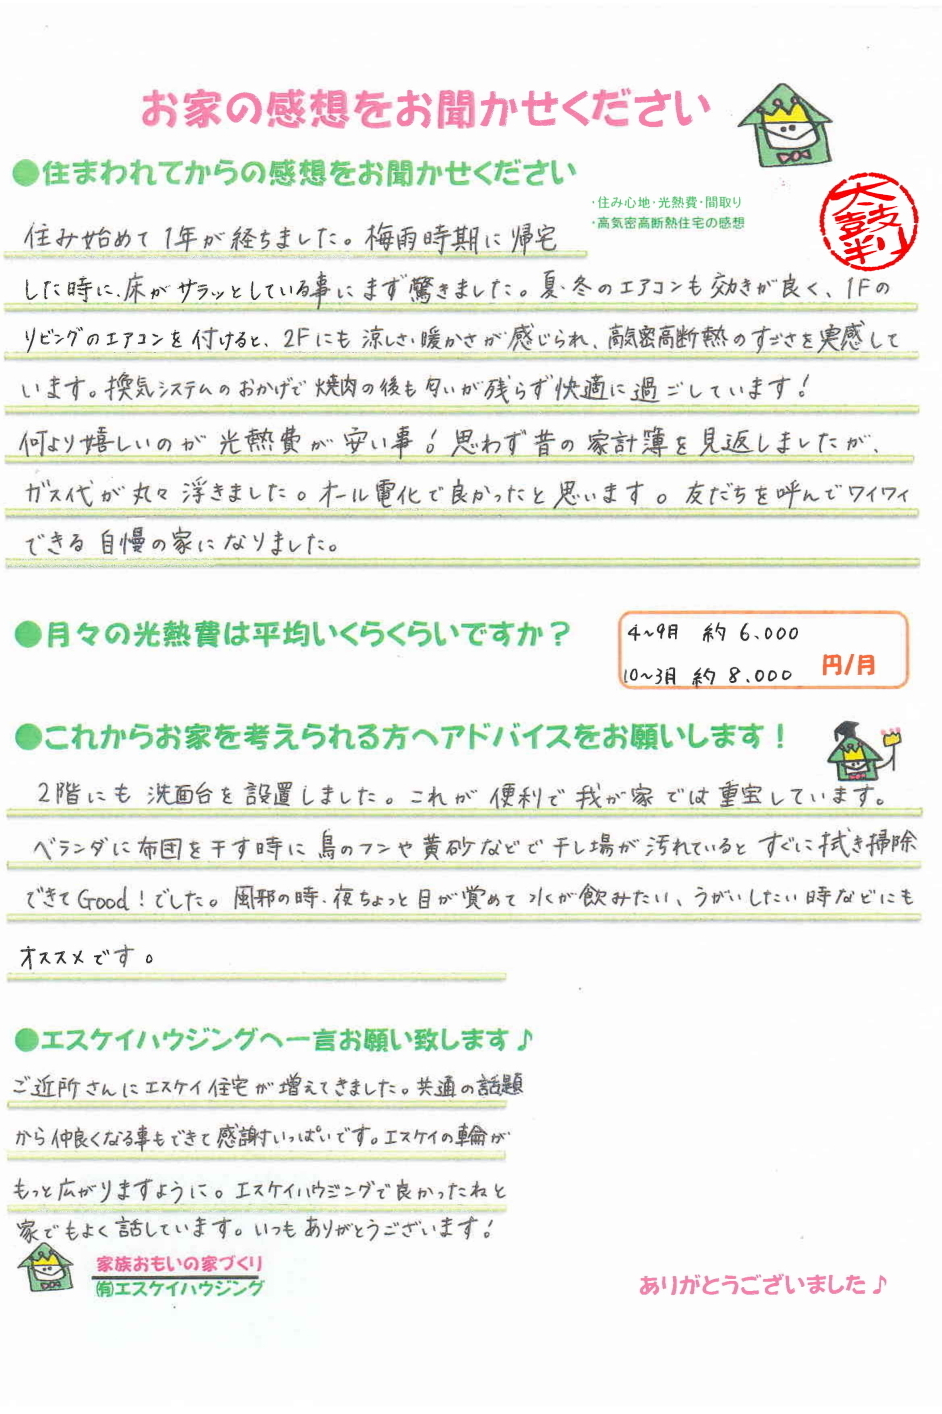 お家の感想をお聞かせください
●住まわれてからの感想をお聞かせください
・住み心地・光熱費・間取り
・高気密高断熱住宅の感想
太鼓判
住み始めて1年が経ちました。梅雨時期に帰宅
した時に、床がサラッとしている事にまず驚きました。夏・冬のエアコンも効きが良く、1Fの
リビングのエアコンを付けると、2Fにも涼しさ・暖かさが感じられ、高気密高断熱のすごさを実感して
います。換気システムのおかげで焼肉の後も匂いが残らず快適に過ごしています!
何より嬉しいのが光熱費が安い事!思わず昔の家計簿を見返しましたが、
ガス代が丸々浮きました。オール電化で良かったと思います。友だちを呼んでワイワイ
できる自慢の家になりました。
●月々の光熱費は平均いくらくらいですか?
4~9月 約6、000
10~3月 約8、000
円/月
●これからお家を考えられる方へアドバイスをお願いします!
2階にも洗面台を設置しました。これが便利で我が家では重宝しています。
ベランダに布団を干す時に鳥のフンや黄砂などで干し場が汚れているとすぐに拭き掃除
できてGood!でした。風邪の時・夜ちょっと目が覚めて水が飲みたい、うがいしたい時などにも
オススメです。
●エスケイハウジングへ一言お願い致します♪
ご近所さんにエスケイ住宅が増えてきました。共通の話題
から仲良くなる事もできて感謝いっぱいです。エスケイの輪が
もっと広がりますように。エスケイハウジングで良かったねと
家でもよく話しています。いつもありがとうございます!
家族おもいの家づくり
㈲エスケイハウジング
ありがとうございました♪